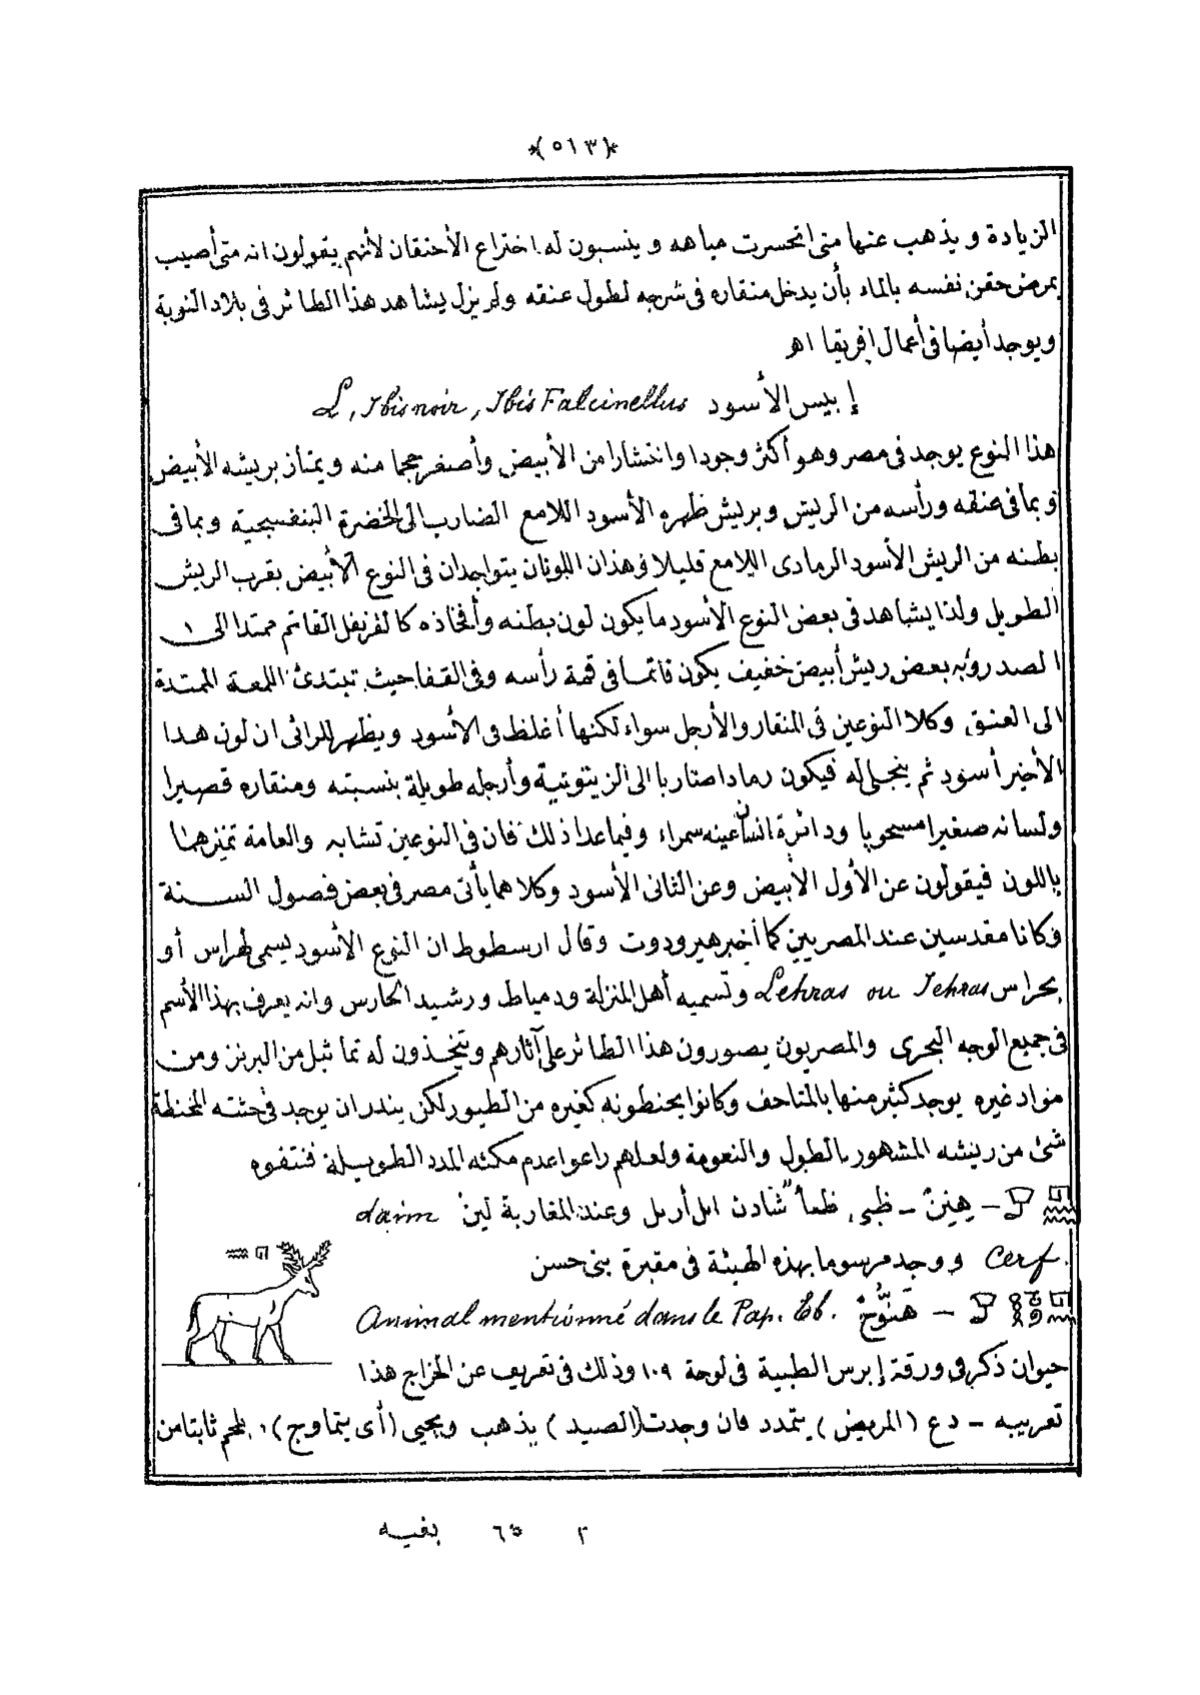 *(٥١٣)*
الزيادة ويذهب عنها متى انحسرت مياهه وينسبون له اختراع الأحتقان لأنهم يقولون انه متى أصيب
بمرض حقن نفسه بالماء بأن يدخل منقاره فى شرجه لطول عنقه ولم يزل يشاهد هذا الطائر فى بلاد النوبة
ويوجد أيضا فى أعمال إفريقا اهـ
إبيس الأسود L, Ibis noir, Ibis Falcinellus
هذا النوع يوجد فى مصر وهو أكثر وجودا وانتشارا من الأبيض وأصغر حجما منه ويمتاز بريشه الأبيض
وبما فى عنقه ورأسه من الريش وبريش ظهره الأسود اللامع الضارب الى الخضرة البنفسجية وبما فى
بطنه من الريش الأسود الرمادى اللامع قليلا وهذان اللونان يتواجدان فى النوع الأبيض بقرب الريش
الطويل ولذا يشاهد فى بعض النوع الأسود ما يكون لون بطنه وأفخاذه كالقرنفل القاتم ممتدا الى
الصدر وبه بعض ريش أبيض خفيف يكون قاتما فى قمة رأسه وفى القفا حيث تبتدئ اللمعة الممتدة
الى العنق وكلا النوعين فى المنقار والأرجل سواء لكنها أغلظ فى الأسود ويظهر للرائى ان لون هذا
الأخير أسود ثم ينجلى له فيكون رمادا ضاربا الى الزيتوتية وأرجله طويلة بنسبته ومنقاره قصيرا
ولسانه صغيرا مسحوبا ودائرة انسان عينه سمراء وفيما عدا ذلك فان فى النوعين تشابه والعامة تميزهما
باللون فيقولون عن الأول الأبيض وعن الثانى الأسود وكلاهما يأتى مصر فى بعض فصول السنة
وكانا مقدسين عند المصريين كما أخبر هيرودوت وقال ارسطوط ان النوع الأسود يسمى لهراس أو
يحراس Lehras ou Jehras وتسميه أهل المنزلة ودمياط ورشيد الحارس وانه يعرف بهذا الأسم
فى جميع الوجه البحرى والمصريون يصورون هذا الطائر على آثارهم ويتخذون له تماثيل من البرنز ومن
مواد غيره يوجد كثير منها بالمتاحف وكانوا يحنطونه كغيره من الطيور لكن يندر ان يوجد فى جثته المحنطة
شئ من ريشه المشهور بالطول والنعومة ولعلهم راعوا عدم مكثه المدد الطويلة فنتفوه
— هِنِن — ظبى, ظمأ شادن ايل أريل وعند المغاربة لين daim
Cerf. ووجد مرسوما بهذه الهيئة فى مقبرة بنى حسن
— هَنُّوحْ Animal mentionné dans le Pap. Eb.
حيوان ذكر فى ورقة إبرس الطبية فى لوحة ١٠٩ وذلك فى تعريف عن الخراج هذا
تعريبه — دع (المريض) يتمدد فان وجدت (الصيد) يذهب ويجيى (أى يتماوج) ٠ بلحم ثابتا من
٢ ٦٥ بغيه